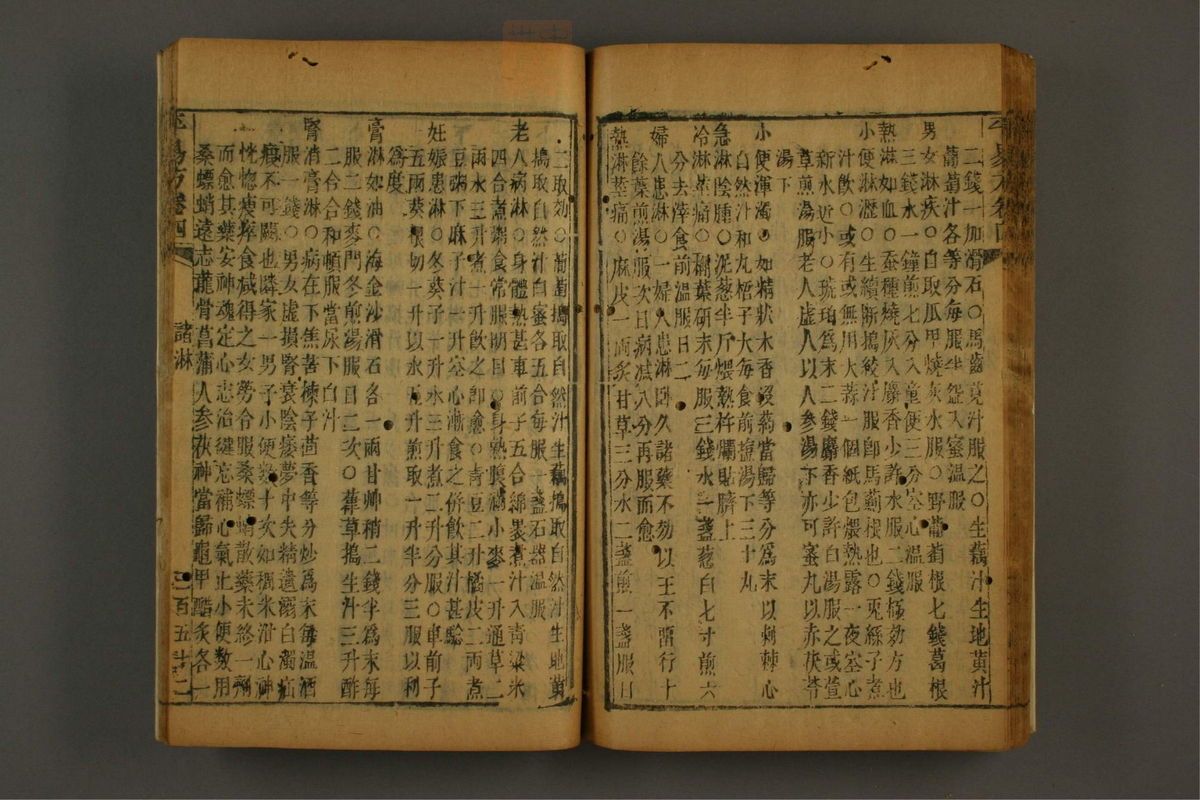 二錢一加滑石○馬齒莧汁服之○生藕汁生地黃汁
葡萄汁各等分每服半盞入蜜溫服
男女淋疾○白取瓜甲燒灰水服○野葡萄根七錢葛根
三錢水一鐘煎七分入童便三分空心溫服
熱淋如血○蚕種燒灰入麝香少許水服二錢極効方也
小便淋瀝○生續斷搗絞汁服卽馬薊根也○兎絲子煮
汁飲○或有或無用大蒜一個紙包煨熱露一夜空心
新水近小○琥珀爲末二錢麝香少許白湯服之或萱
草煎湯服老人虛人以人參湯下亦可蜜九以赤茯苓
湯下
小便渾濁○如精狀木香沒藥當歸等分爲末以刺棘心
自然汁和丸梧子大每食前塩湯下三十丸
急淋陰腫○泥葱半斤煨熱杵爛貼臍上
冷淋莖痛○槲葉硏末每服三錢水一盞葱白七寸煎六
分去滓食前溫服日二
婦人患淋○一婦人患淋卧久諸藥不効以王不畱行十
餘葉煎湯服次日病减八分再服而愈
熱淋莖痛○麻皮一兩炙甘草三分水二盞煎一盞服日
二取効○葡萄搗取自然汁生藕搗取自然汁生地黃
搗取自然汁白蜜各五合每服一盞石器溫服
老人病淋○身體熱甚車前子五合綿裹煮汁入青粱米
四合煮粥食常服明目○身熱腹痛小麥一升通草二
兩水三升煮一升飲之卽愈○青豆二升橘皮二兩煮
豆粥下麻子汁一升空心漸食之併飲其汁甚驗
妊娠患淋○冬葵子一升水三升煮二升分服○車前子
五兩葵根切一升以水五升煎取一升半分三服以利
爲度
膏淋如油○海金沙滑石各一兩甘艸稍二錢半爲末每
服二錢麥門冬煎湯服日二次○葎草搗生汁三升酢
二合合和頓服當尿下白汁
腎消膏淋○病在下焦苦楝子茴香等分炒爲末每溫酒
服一錢○男女虛損腎衰陰痿夢中失精遺溺白濁疝
㿗不可闕也隣家一男子小便数十次如稠米泔心神
恍惚瘦瘁食减得之女勞令服桑螵蛸散藥未終一劑
而愈其藥安神魂定心志治健忘補心氣止小便数用
桑螵蛸遠志龍骨菖蒲人參茯神當歸龜甲醋炙各一
諸淋
三百五十二